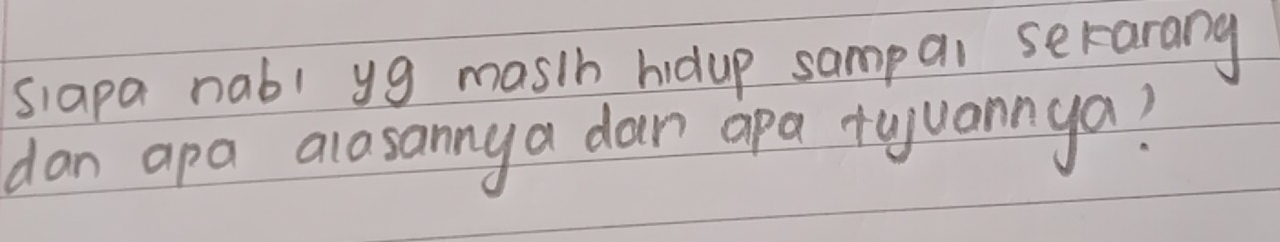 siapa nabi yg masih hidup sampai sekarang
dan apa alasannya dan apa tujuannya?